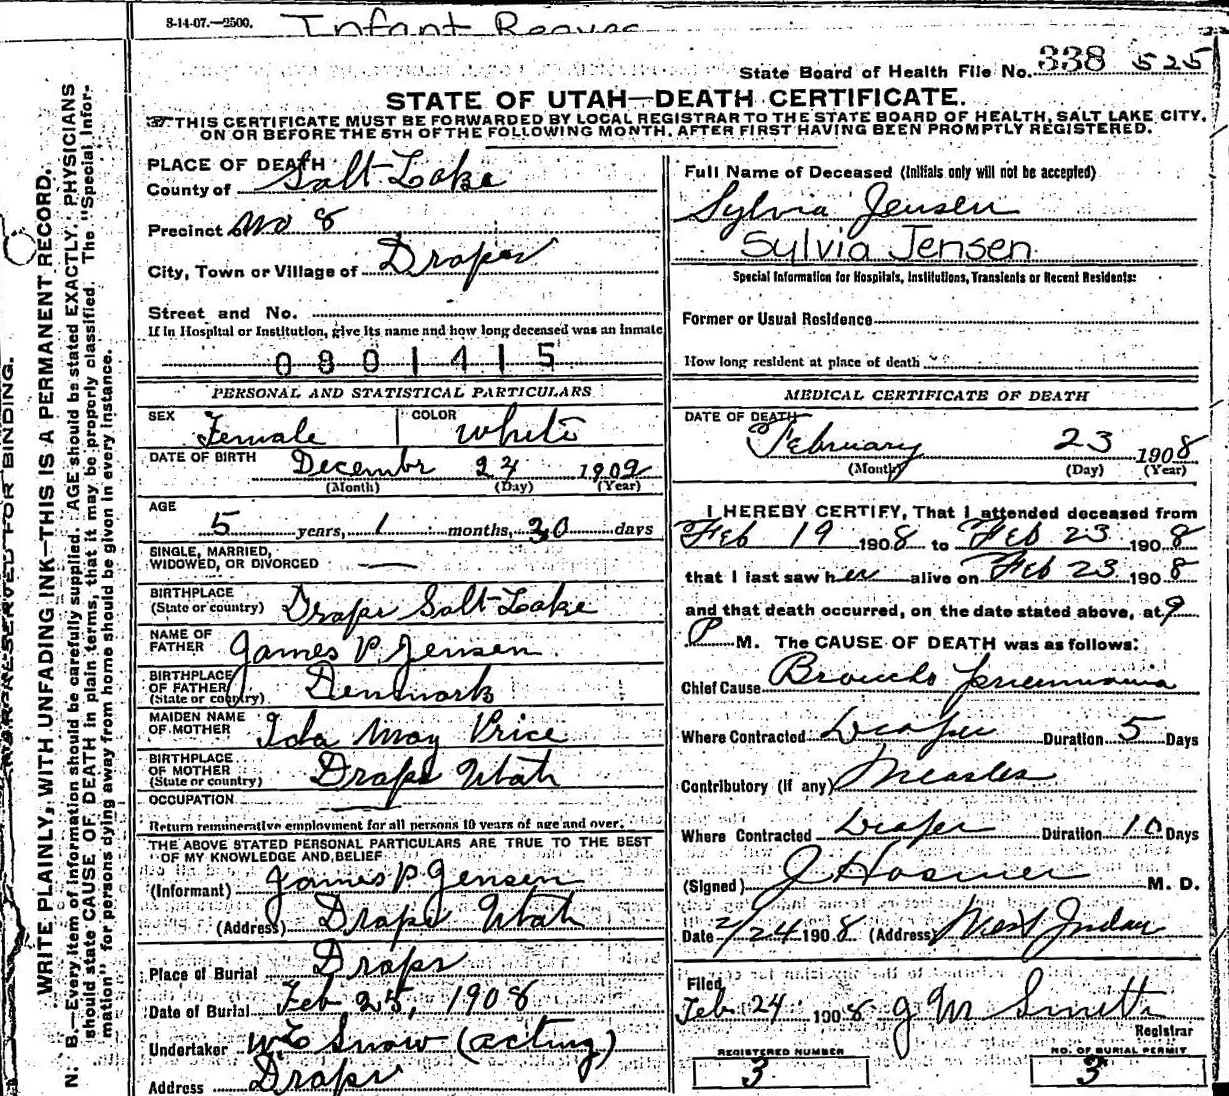 8-14-07.—2500.
Infant Reaves
State Board of Health File No. 338 525
STATE OF UTAH—DEATH CERTIFICATE.
THIS CERTIFICATE MUST BE FORWARDED BY LOCAL REGISTRAR TO THE STATE BOARD OF HEALTH, SALT LAKE CITY,
ON OR BEFORE THE 5TH OF THE FOLLOWING MONTH, AFTER FIRST HAVING BEEN PROMPTLY REGISTERED.
PLACE OF DEATH
County of Salt Lake
Precinct No 8
City, Town or Village of Draper
Street and No.
If in Hospital or Institution, give its name and how long deceased was an inmate
0801415
PERSONAL AND STATISTICAL PARTICULARS
SEX Female COLOR White
DATE OF BIRTH December 24 1902
(Month) (Day) (Year)
AGE
5 years, 1 months, 30 days
SINGLE, MARRIED,
WIDOWED, OR DIVORCED —
BIRTHPLACE
(State or country) Draper Salt Lake
NAME OF
FATHER James P. Jensen
BIRTHPLACE
OF FATHER
(State or country) Denmark
MAIDEN NAME
OF MOTHER Ida May Price
BIRTHPLACE
OF MOTHER
(State or country) Draper Utah
OCCUPATION —
Return remunerative employment for all persons 10 years of age and over.
THE ABOVE STATED PERSONAL PARTICULARS ARE TRUE TO THE BEST
OF MY KNOWLEDGE AND BELIEF
(Informant) James P. Jensen
(Address) Draper Utah
Place of Burial Draper
Date of Burial Feb 25, 1908
Undertaker W E Snow (acting)
Address Draper
Full Name of Deceased (Initials only will not be accepted)
Sylvia Jensen
Sylvia Jensen
Special Information for Hospitals, Institutions, Transients or Recent Residents:
Former or Usual Residence
How long resident at place of death
MEDICAL CERTIFICATE OF DEATH
DATE OF DEATH
February 23 1908
(Month) (Day) (Year)
I HEREBY CERTIFY, That I attended deceased from
Feb 19 1908 to Feb 23 1908
that I last saw her alive on Feb 23 1908
and that death occurred, on the date stated above, at 9
P M. The CAUSE OF DEATH was as follows:
Chief Cause Broncho Pneumonia
Where Contracted Draper Duration 5 Days
Contributory (if any) Measles
Where Contracted Draper Duration 10 Days
(Signed) J Hosmer M. D.
Date 2/24 1908 (Address) West Jordan
Filed
Feb 24 1908 J M Smith
Registrar
REGISTERED NUMBER
3
NO. OF BURIAL PERMIT
3
MARGIN RESERVED FOR BINDING.
WRITE PLAINLY, WITH UNFADING INK—THIS IS A PERMANENT RECORD.
N. B.—Every item of information should be carefully supplied. AGE should be stated EXACTLY. PHYSICIANS
should state CAUSE OF DEATH in plain terms, that it may be properly classified. The "Special Infor-
mation" for persons dying away from home should be given in every instance.